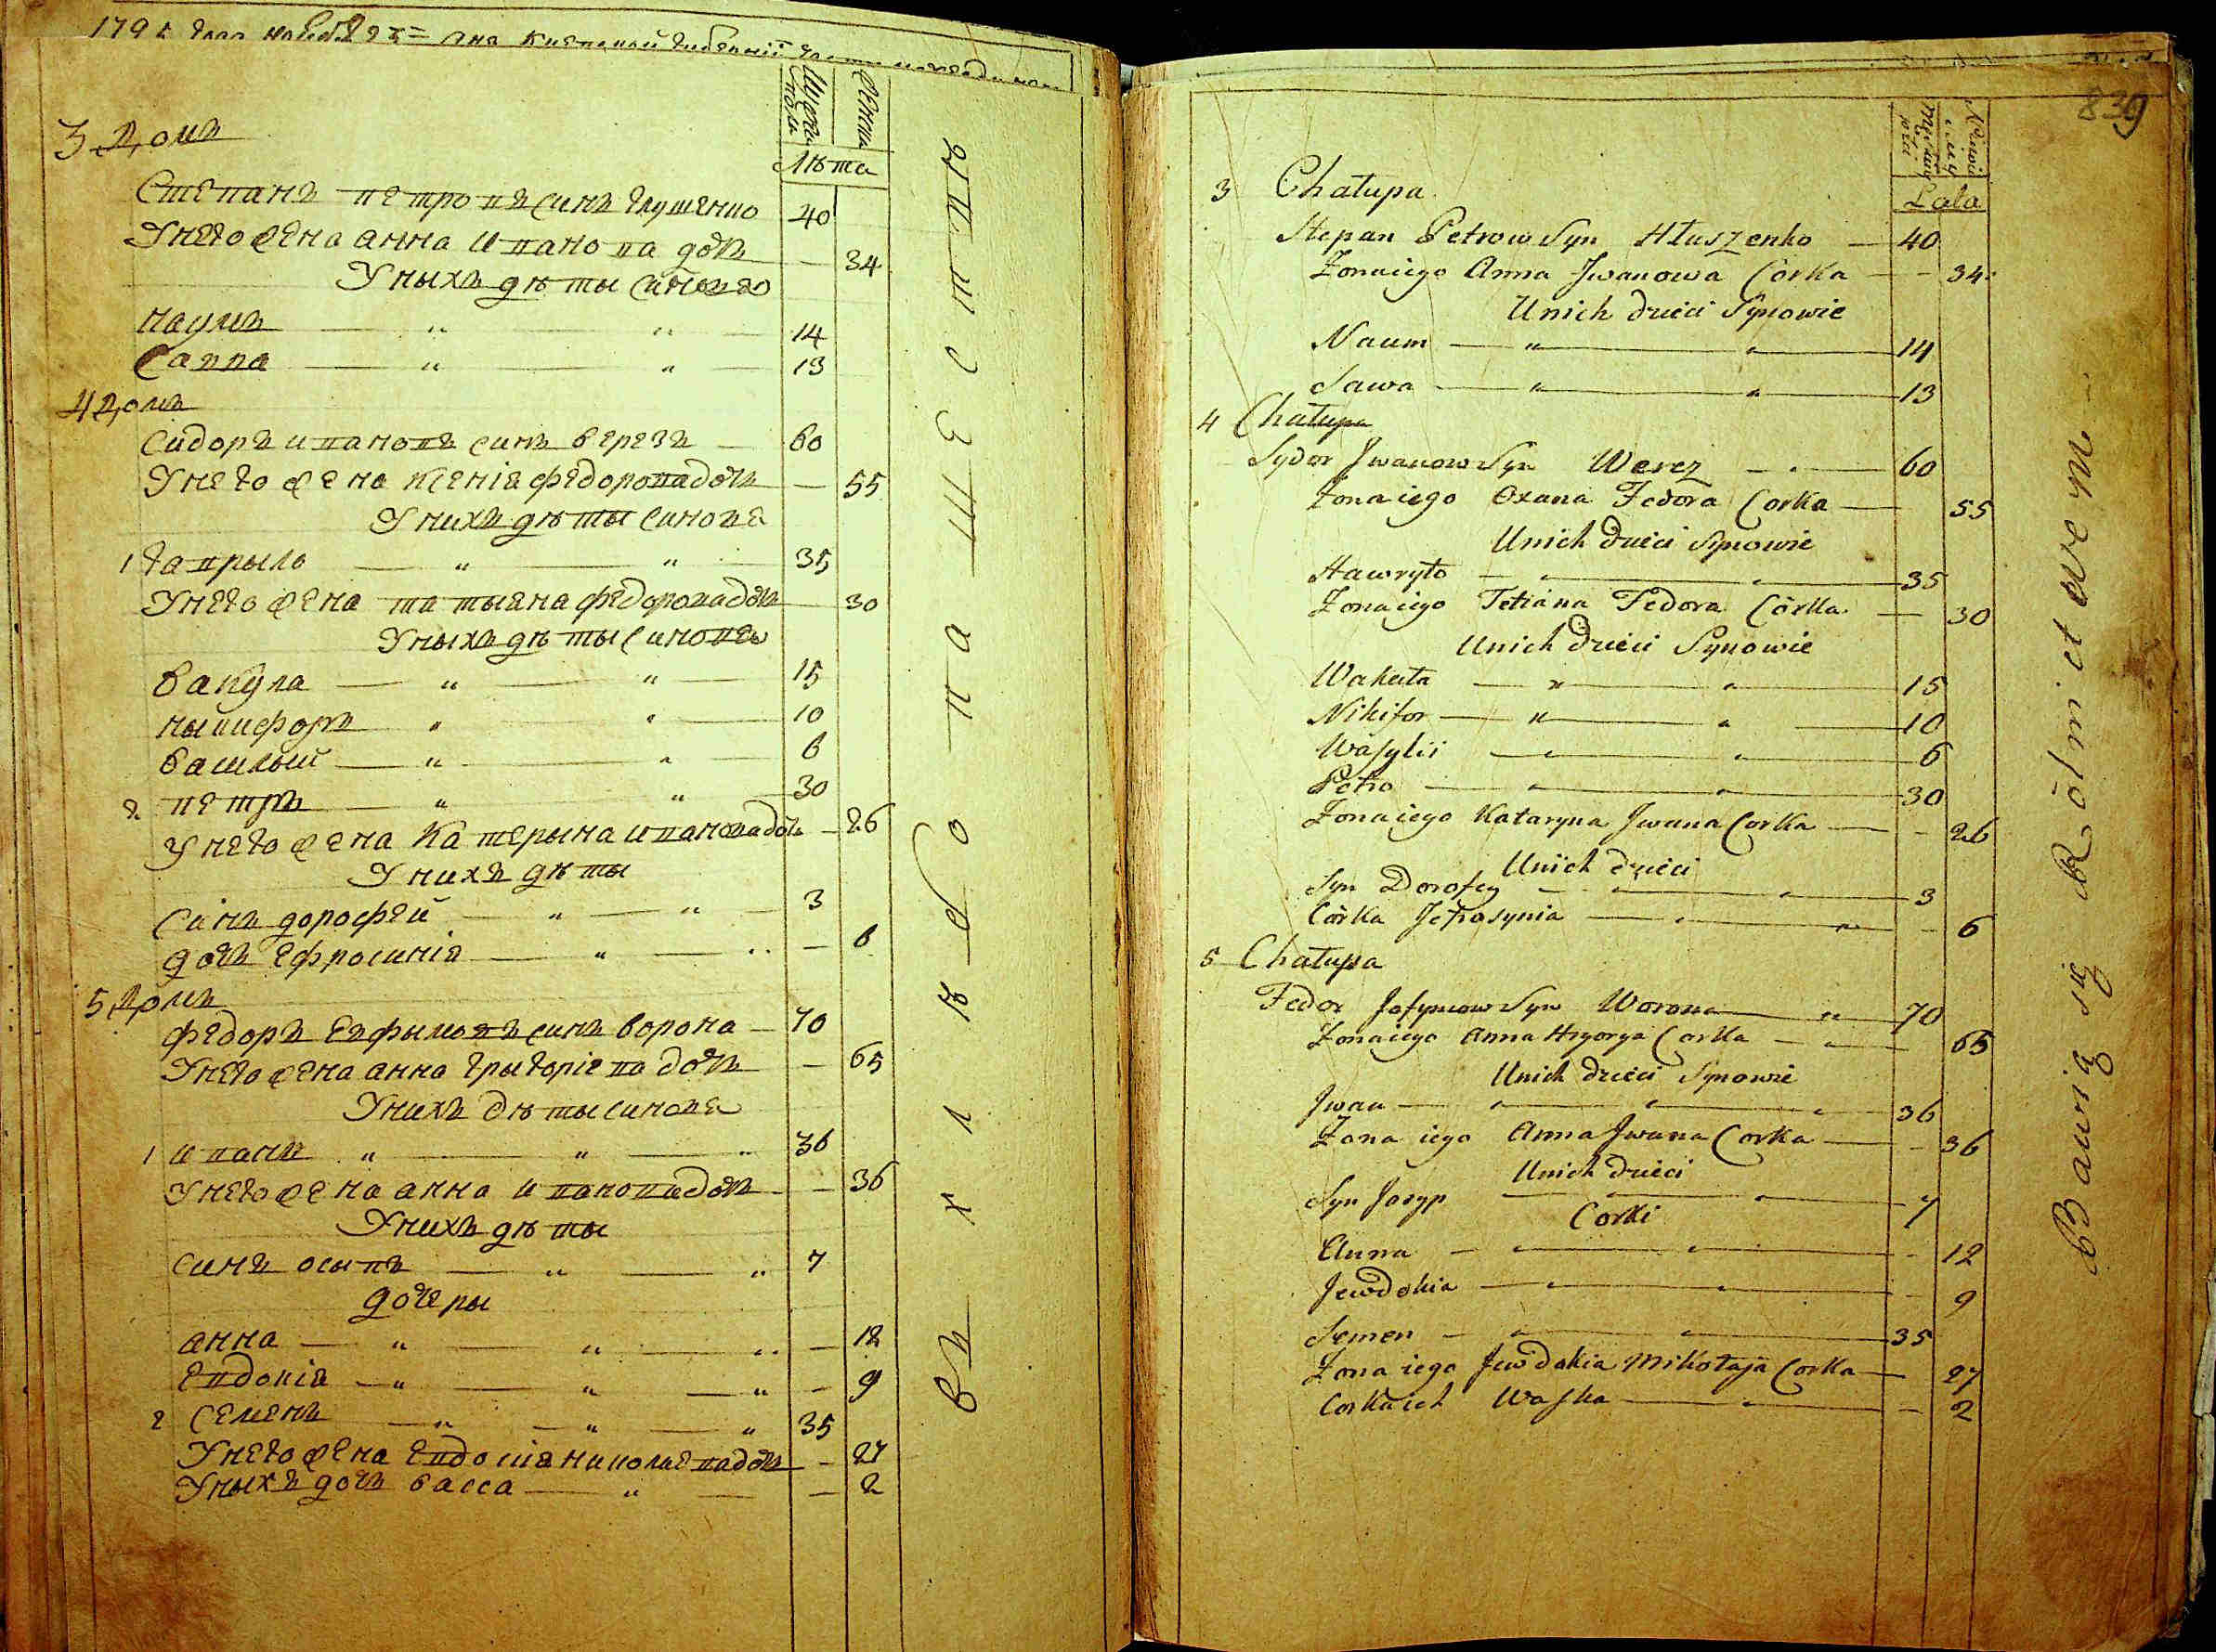 3 Домъ
Мужеска
полу
Женска
Лѣта
Степанъ петровъ синъ глушенко 40
У него жена анна иванова дочь — 34
У ныхъ дѣты синовѣ
наумъ — " " — 14
Савва — " " — 13
4 Домъ
Сидоръ ивановъ синъ верезъ — 60
У него жена ксенія федорова дочь — 55
У нихъ дѣты синовя
1 гаврыло — " — " — 35
У него жена татьяна федорова дочь — 30
У ныхъ дѣты синовя
вакула — " — " — 15
ныкифоръ — " " — 10
василый — " " — 6
2 петръ — " " — 30
У него жена катерына иванова дочь — 26
У нихъ дѣты
Синъ дорофей — " — " — 3
дочь ефросинія — " — " — 6
5 Домъ
федоръ Евфымовъ синъ ворона — 70
У него жена анна григоріева дочь — 65
У нихъ дѣты синовя
1 иванъ " — " — " 36
У него жена анна иванова дочь — 36
У нихъ дѣты
синъ осыпъ — " — " 7
дочеры
анна — " — " — " — 12
Евдокія — " — " — " — 9
2 Семенъ — " — " — " 35
У него жена Евдокія николаева дочь — 27
У ныхъ дочь васса — " — — 2
въ хлѣборобл
839
3 Chałupa
Lata
Stepan Petrow Syn Hłuszenko — 40
Zona iego Anna Jwanowa Corka — 34
Unich dzieci Synowie
Naum — " — " — 14
Sawa — " — " — 13
4 Chałupa
Sydor Jwanow Syn Werez — " — 60
Zona iego Oxana Fedora Corka — 55
Unich dzieci Synowie
Hawryło — " — " — 35
Zona iego Tetiana Fedora Corka — 30
Unich dzieci Synowie
Wakuła — " — " — 15
Nikifor — " — " — 10
Wasylii — " — " — 6
Petro — " — " — 30
Zona iego Kataryna Jwana Corka — 26
Unich dzieci
Syn Dorofey — " — " — 3
Córka Jefrosynia — " — " — 6
5 Chałupa
Fedor Jofymow Syn Worona — " — 70
Zona iego Anna Hryorya Corka — " — 65
Unich dzieci Synowie
Jwan — " — " — " — 36
Zona iego Anna Jwana Corka — 36
Unich dzieci
Syn Josyp — " — " — 7
Corki
Anna — " — " — 12
Jewdokia — " — " — 9
Semen — " — " — 35
Zona iego Jewdokia Mikołaja Corka — 27
Corka ich Waska — " — 2
Bawią się Rólnictwem